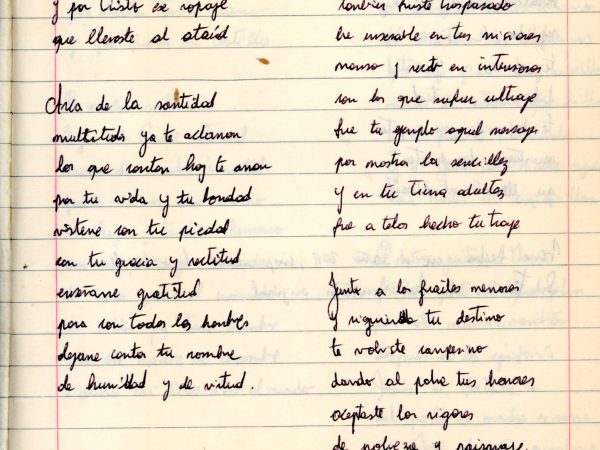 y por Cristo ese ropaje
que llevaste al ataúd
Arca de la santidad
multitudes ya te aclaman
los que cantan hoy te aman
por tu vida y tu bondad
vísteme con tu piedad
con tu gracia y rectitud
enséñame gratitud
para con todos los hombres
dejame cantar tu nombre
de humildad y de virtud.
también fuiste traspasado
en tus misiones
manso y recto en
con los que sufren ultraje
fue tu ejemplo aquel mensaje
por mostrar la sencillez
y en tu tierna
fue a telas hecho tu traje
Junto a los frailes menores
y siguiendo tu destino
te volviste campesino
dando al pobre tus honores
aceptaste los rigores
de pobreza y